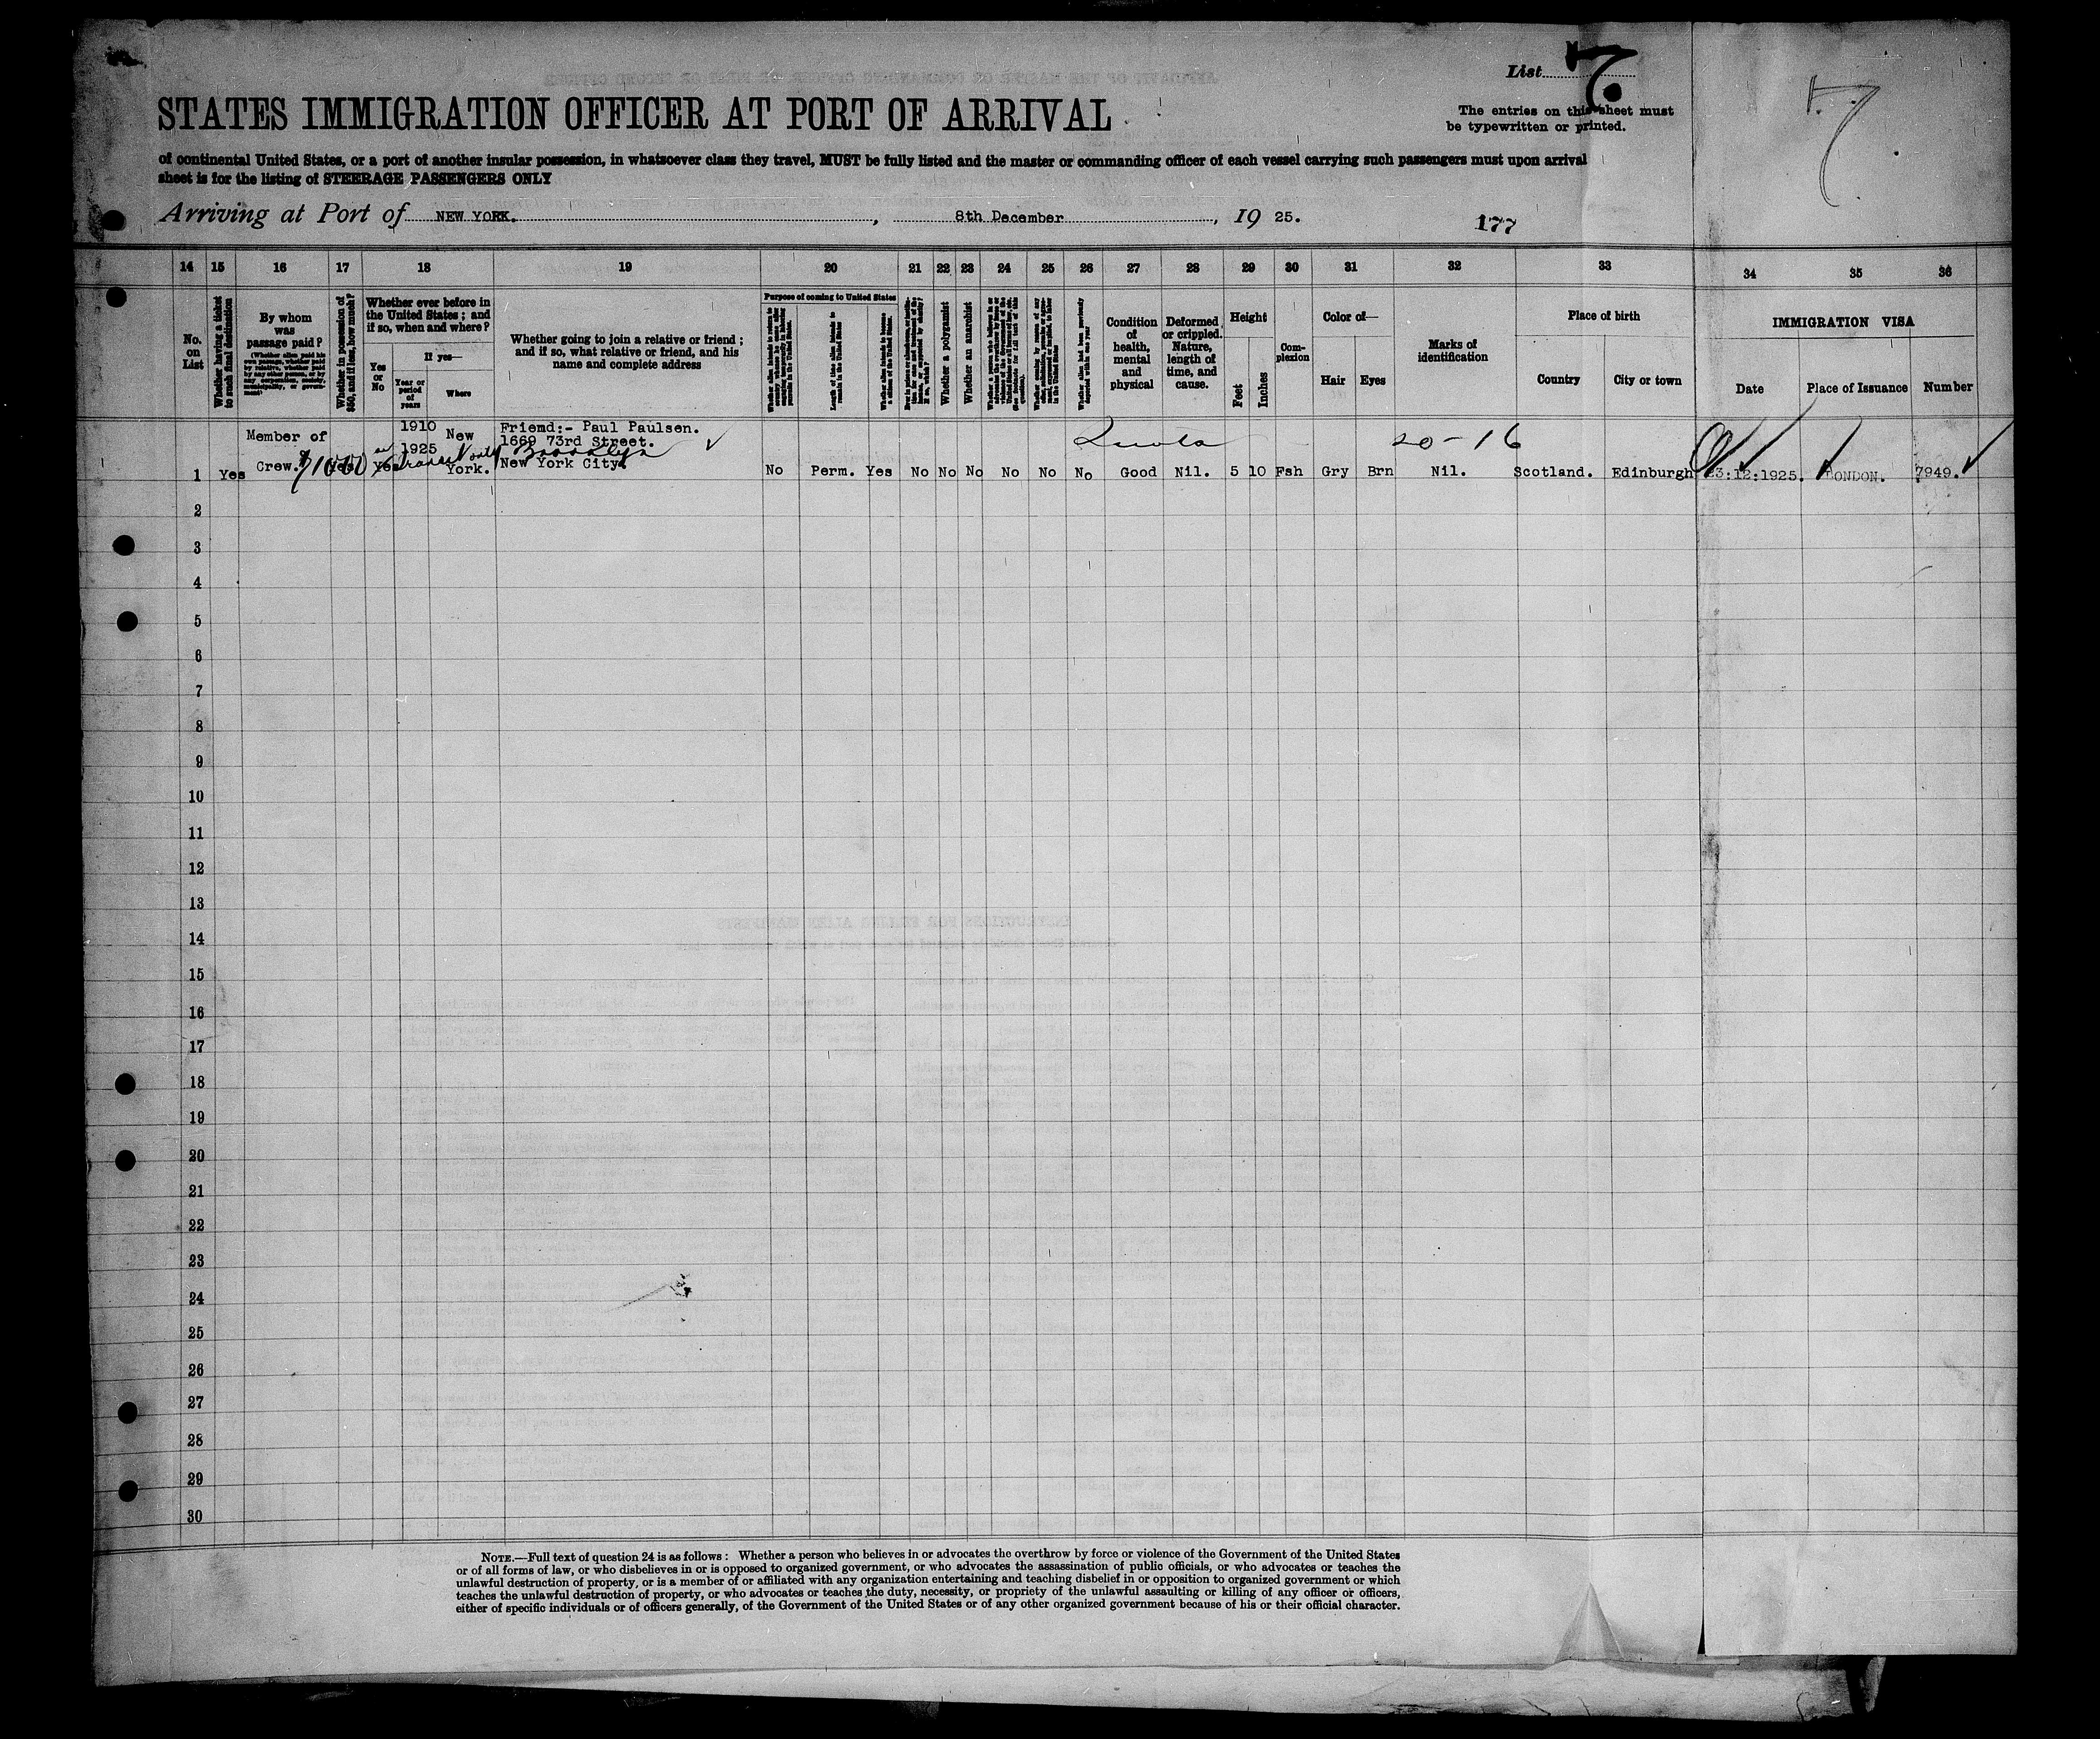 List 7
The entries on this sheet must
be typewritten or printed.
7
STATES IMMIGRATION OFFICER AT PORT OF ARRIVAL
of continental United States, or a port of another insular possession, in whatsoever class they travel, MUST be fully listed and the master or commanding officer of each vessel carrying such passengers must upon arrival
sheet is for the listing of STEERAGE PASSENGERS ONLY
Arriving at Port of NEW YORK. , 8th December , 19 25.
177
14 15 16 17 18 19 20 21 22 23 24 25 26 27 28 29 30 31 32 33 34 35 36
No. on List
Whether having a ticket to such final destination
By whom was passage paid?
Whether in possession of $50, and if less, how much?
Whether ever before in the United States; and if so, when and where?
Yes or No
If yes—
Year or period of years
Where
Whether going to join a relative or friend; and if so, what relative or friend, and his name and complete address
Purpose of coming to United States
Length of time alien intends to remain in the United States
Whether a polygamist
Whether an anarchist
Condition of health, mental and physical
Deformed or crippled. Nature, length of time, and cause.
Height
Feet
Inches
Complexion
Color of—
Hair
Eyes
Marks of identification
Place of birth
Country
City or town
IMMIGRATION VISA
Date
Place of Issuance
Number
1910
1925
Friend:- Paul Paulsen.
1669 73rd Street.
Brooklyn
New York City.
Quota
20-16
1 Yes Member of Crew. $1000 Yes Yes transit only New York. No Perm. Yes No No No No No No Good Nil. 5 10 Fsh Gry Brn Nil. Scotland. Edinburgh 23:12:1925. LONDON. 7949.
2
3
4
5
6
7
8
9
10
11
12
13
14
15
16
17
18
19
20
21
22
23
24
25
26
27
28
29
30
NOTE.—Full text of question 24 is as follows: Whether a person who believes in or advocates the overthrow by force or violence of the Government of the United States
or of all forms of law, or who disbelieves in or is opposed to organized government, or who advocates the assassination of public officials, or who advocates or teaches the
unlawful destruction of property, or is a member of or affiliated with any organization entertaining and teaching disbelief in or opposition to organized government or which
teaches the unlawful destruction of property, or who advocates or teaches the duty, necessity, or propriety of the unlawful assaulting or killing of any officer or officers,
either of specific individuals or of officers generally, of the Government of the United States or of any other organized government because of his or their official character.